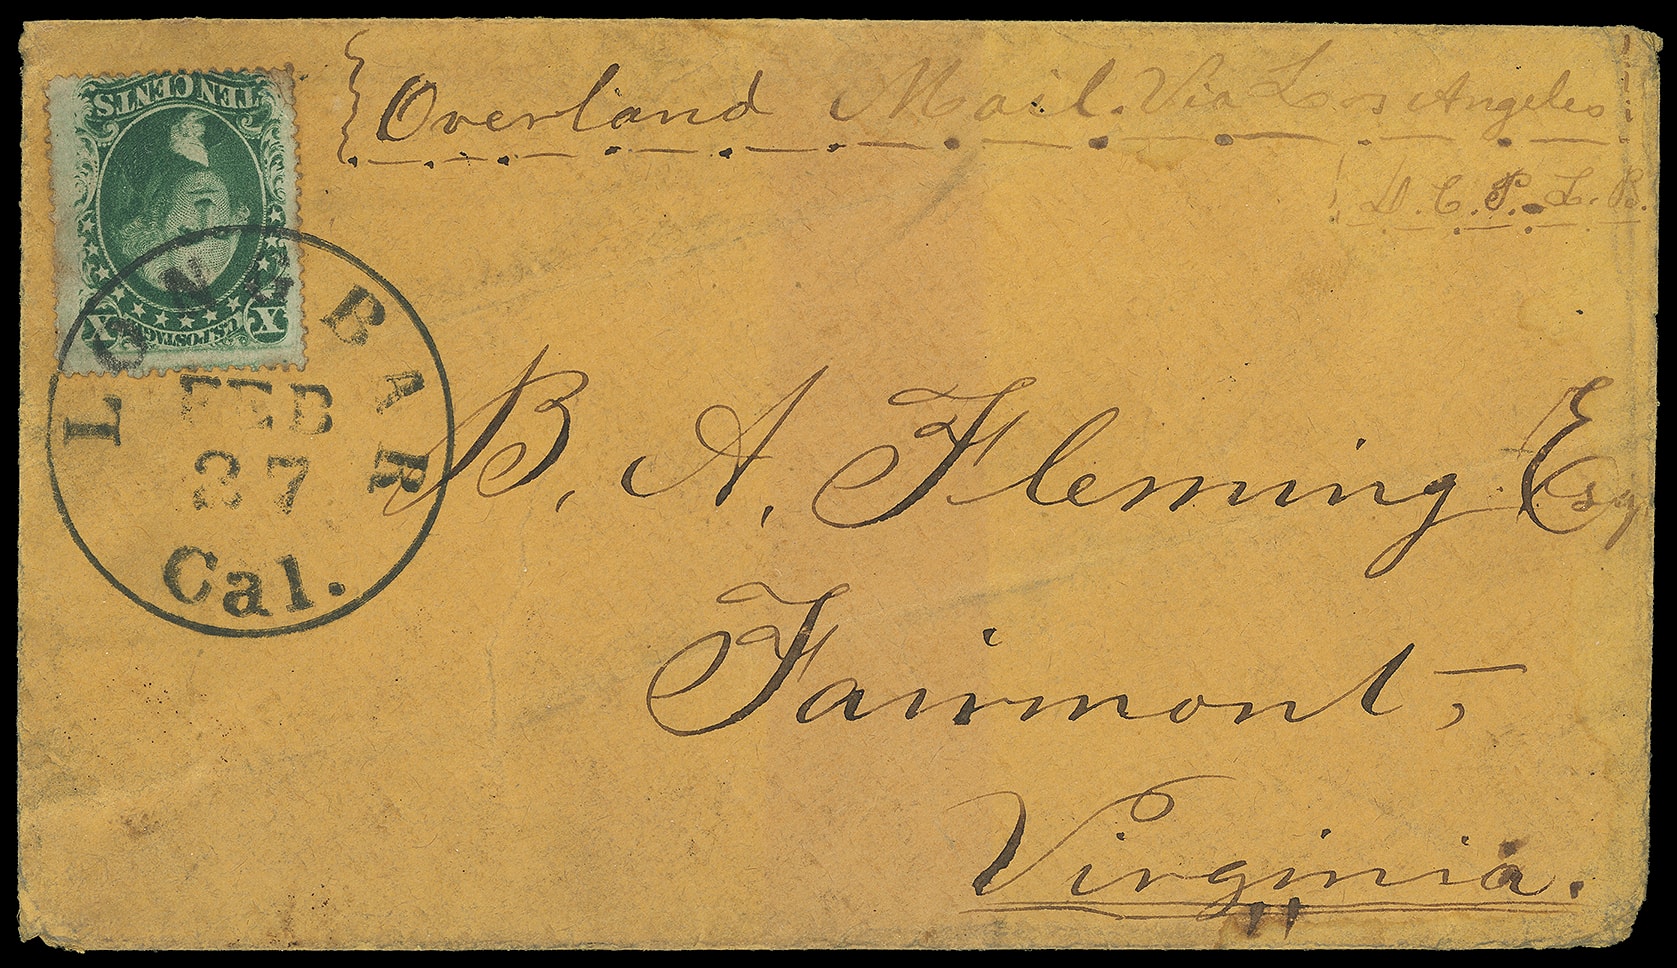 Overland Mail. Via Los Angeles
D. C. P. L. B.
TEN CENTS
U.S. POSTAGE
X X
LONG BAR
FEB
27
Cal.
B. A. Fleming Esq
Fairmont,
Virginia.